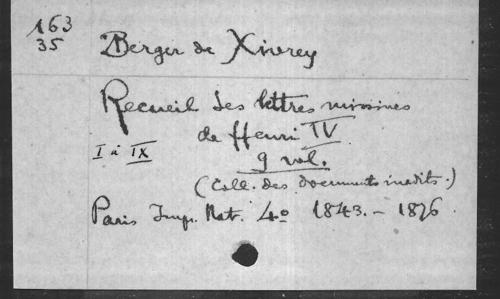 163
35
Berger de Xivrey
Recueil des lettres missives
de Henri IV
I à IX
9 vol.
(Coll. des documents inédits.)
Paris Imp. Nat. 4º 1843. - 1876.